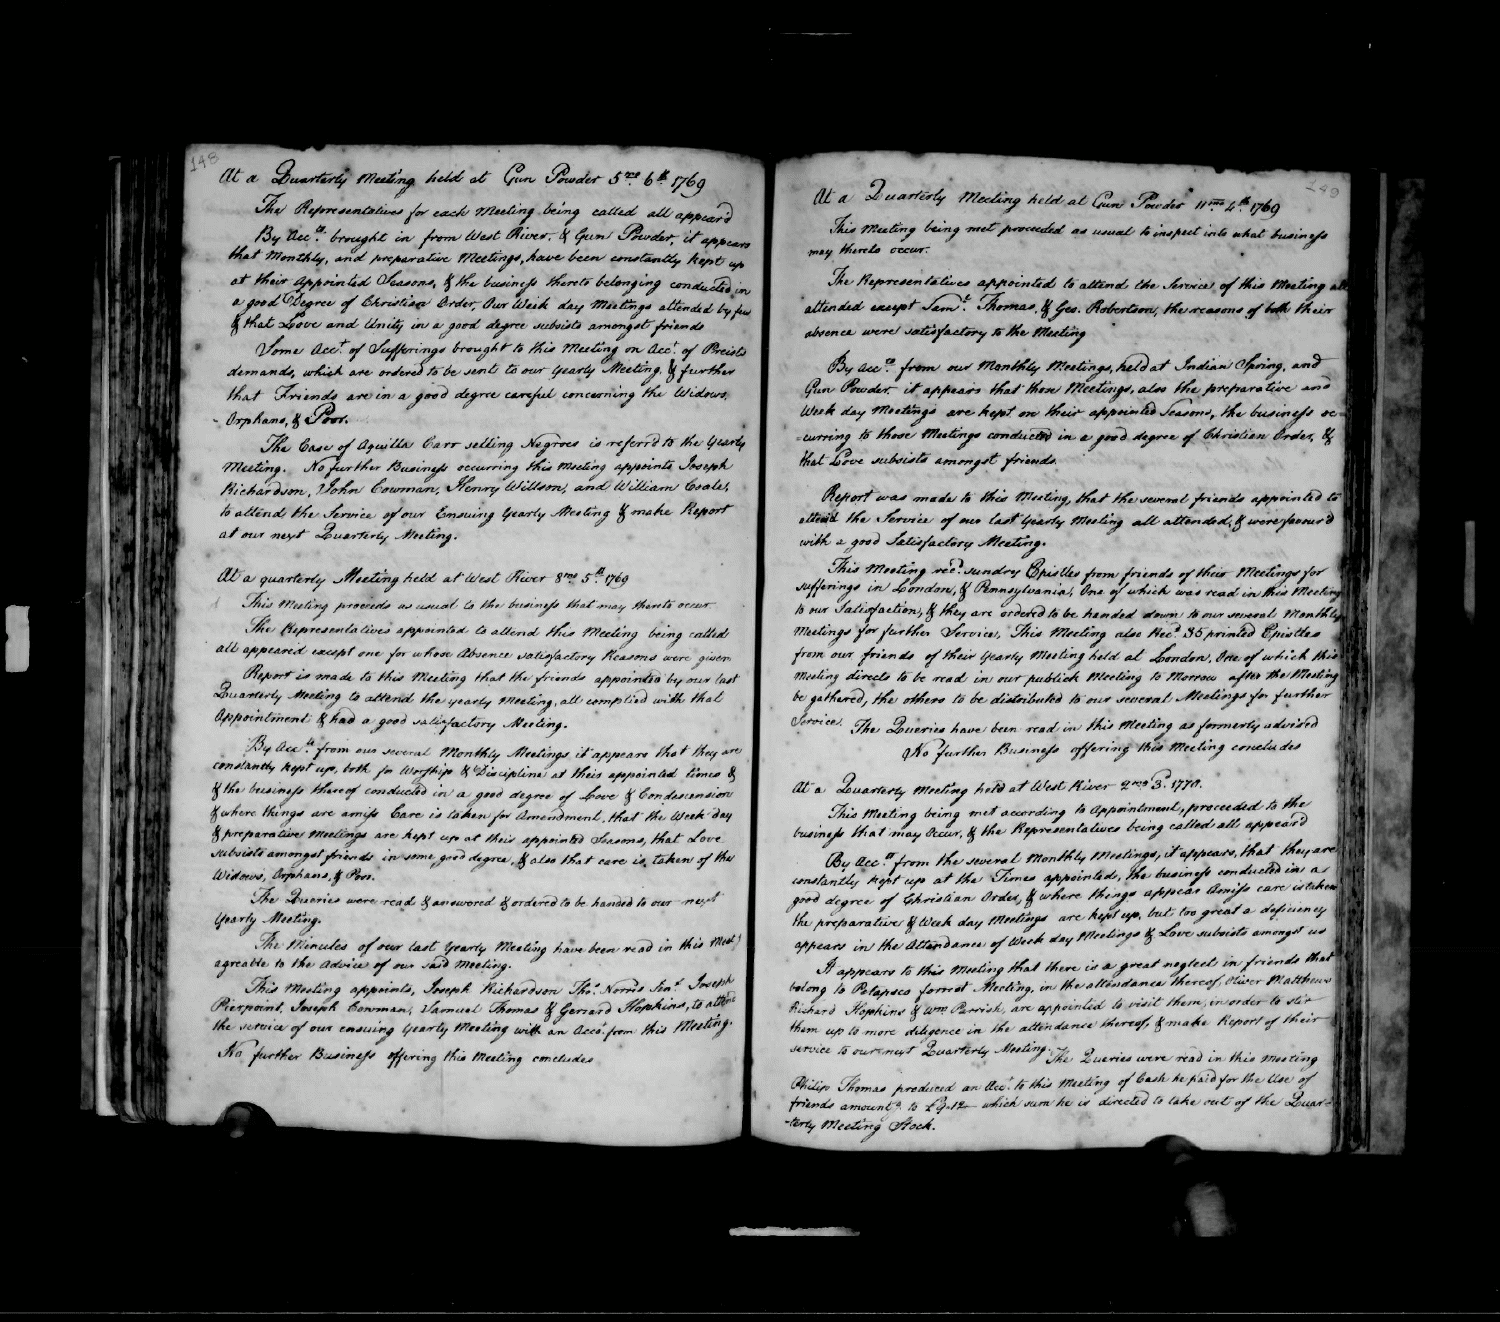 148
At a Quarterly Meeting held at Gun Powder 5mo. 6th 1769
The Representatives for each Meeting being called all appeard
By Accts. brought in from West River, & Gun Powder, it appears
that Monthly, and preparative Meetings, have been constantly kept up
at their Appointed Seasons, & the business thereto belonging conducted in
a good Degree of Christian Order, Our Week day Meetings attended by few
& that Love and Unity in a good degree subsists amongst friends
Some Acct. of Sufferings brought to this Meeting on Acct. of Preists
demands, which are ordered to be sent to our Yearly Meeting, & further
that Friends are in a good degree careful concerning the Widows,
Orphans, & Poor.
The Case of Aquilla Carr selling Negroes is referrd to the Yearly
Meeting. No further Business occurring this Meeting appoints Joseph
Richardson, John Cowman, Henry Willson, and William Coale,
to attend the Service of our Ensuing Yearly Meeting & make Report
at our next Quarterly Meeting.
At a quarterly Meeting held at West River 8mo. 5th 1769
This Meeting proceeds as usual to the business that may thereto occur
The Representatives appointed to attend this Meeting being called
all appeared except one for whose Absence satisfactory Reasons were given
Report is made to this Meeting that the friends appointed by our last
Quarterly Meeting to attend the yearly Meeting, all complied with that
Appointment & had a good satisfactory Meeting.
By Accts. from our several Monthly Meetings it appears that they are
constantly kept up, both for Worship & Discipline at their appointed times &
& the business thereof conducted in a good degree of Love & Condescension
& where things are amiss Care is taken for Amendment, that the Week day
& preparative Meetings are kept up at their appointed Seasons, that Love
subsists amongst friends in some good degree, & also that care is taken of the
Widows, Orphans, & Poor.
The Queries were read & answered & ordered to be handed to our next
Yearly Meeting.
The Minutes of our last Yearly Meeting have been read in this Meetg
agreable to the Advice of our said Meeting.
This Meeting appoints, Joseph Richardson Thos. Norris Senr. Joseph
Pierpoint, Joseph Cowman, Samuel Thomas & Gerrard Hopkins, to attend
the service of our ensuing Yearly Meeting with an Acco. from this Meeting.
No further Business offering this Meeting concludes
149
At a Quarterly Meeting held at Gun Powder 11mo 4th 1769
This Meeting being met proceeded as usual to inspect into what business
may thereto occur.
The Representatives appointed to attend the Service of this Meeting all
attended except Saml. Thomas, & Geo. Robertson, the reasons of both their
absence were satisfactory to the Meeting
By Accts. from our Monthly Meetings, held at Indian Spring, and
Gun Powder it appears that those Meetings, also the preparative and
Week day Meetings are kept on their appointed Seasons, the business oc
=curring to those Meetings conducted in a good degree of Christian Order, &
that Love subsists amongst friends.
Report was made to this Meeting, that the several friends appointed to
attend the Service of our last Yearly Meeting all attended, & were favour'd
with a good Satisfactory Meeting.
This Meeting recd. sundry Epistles from friends of their Meetings for
sufferings in London, & Pennsylvania, One of which was read in this Meeting
to our Satisfaction, & they are ordered to be handed down to our several Monthly
Meetings for further Service, This Meeting also Recd. 35 printed Epistles
from our friends of their Yearly Meeting held at London, One of which this
Meeting directs to be read in our publick Meeting to Morrow after the Meeting
be gathered, the others to be distributed to our several Meetings for further
Service. The Queries have been read in this Meeting as formerly advised
No further Business offering this Meeting concludes
At a Quarterly Meeting held at West River 2mo 3d. 1770.
This Meeting being met according to Appointment, proceeded to the
business that may Occur, & the Representatives being called all appeard
By Accts from the several Monthly Meetings, it appears, that they are
constantly kept up at the Times appointed, the business conducted in a
good degree of Christian Order, & where things appear Amiss care is taken
the preparative & Week day Meetings are kept up, but too great a deficiency
appears in the Attendance of Week day Meetings & Love subsists amongst us
It appears to this Meeting that there is a great neglect in friends that
belong to Petapsco forrest Meeting, in the attendance thereof, Oliver Matthews
Richard Hopkins & Wm. Parrish, are appointed to visit them, in order to stir
them up to more diligence in the attendance thereof, & make Report of their
service to our next Quarterly Meeting. The Queries were read in this Meeting
Philip Thomas produced an Acct. to this Meeting of Cash he paid for the Use of
friends amountg. to which sum he is directed to take out of the Quar=
=terly Meeting Stock.